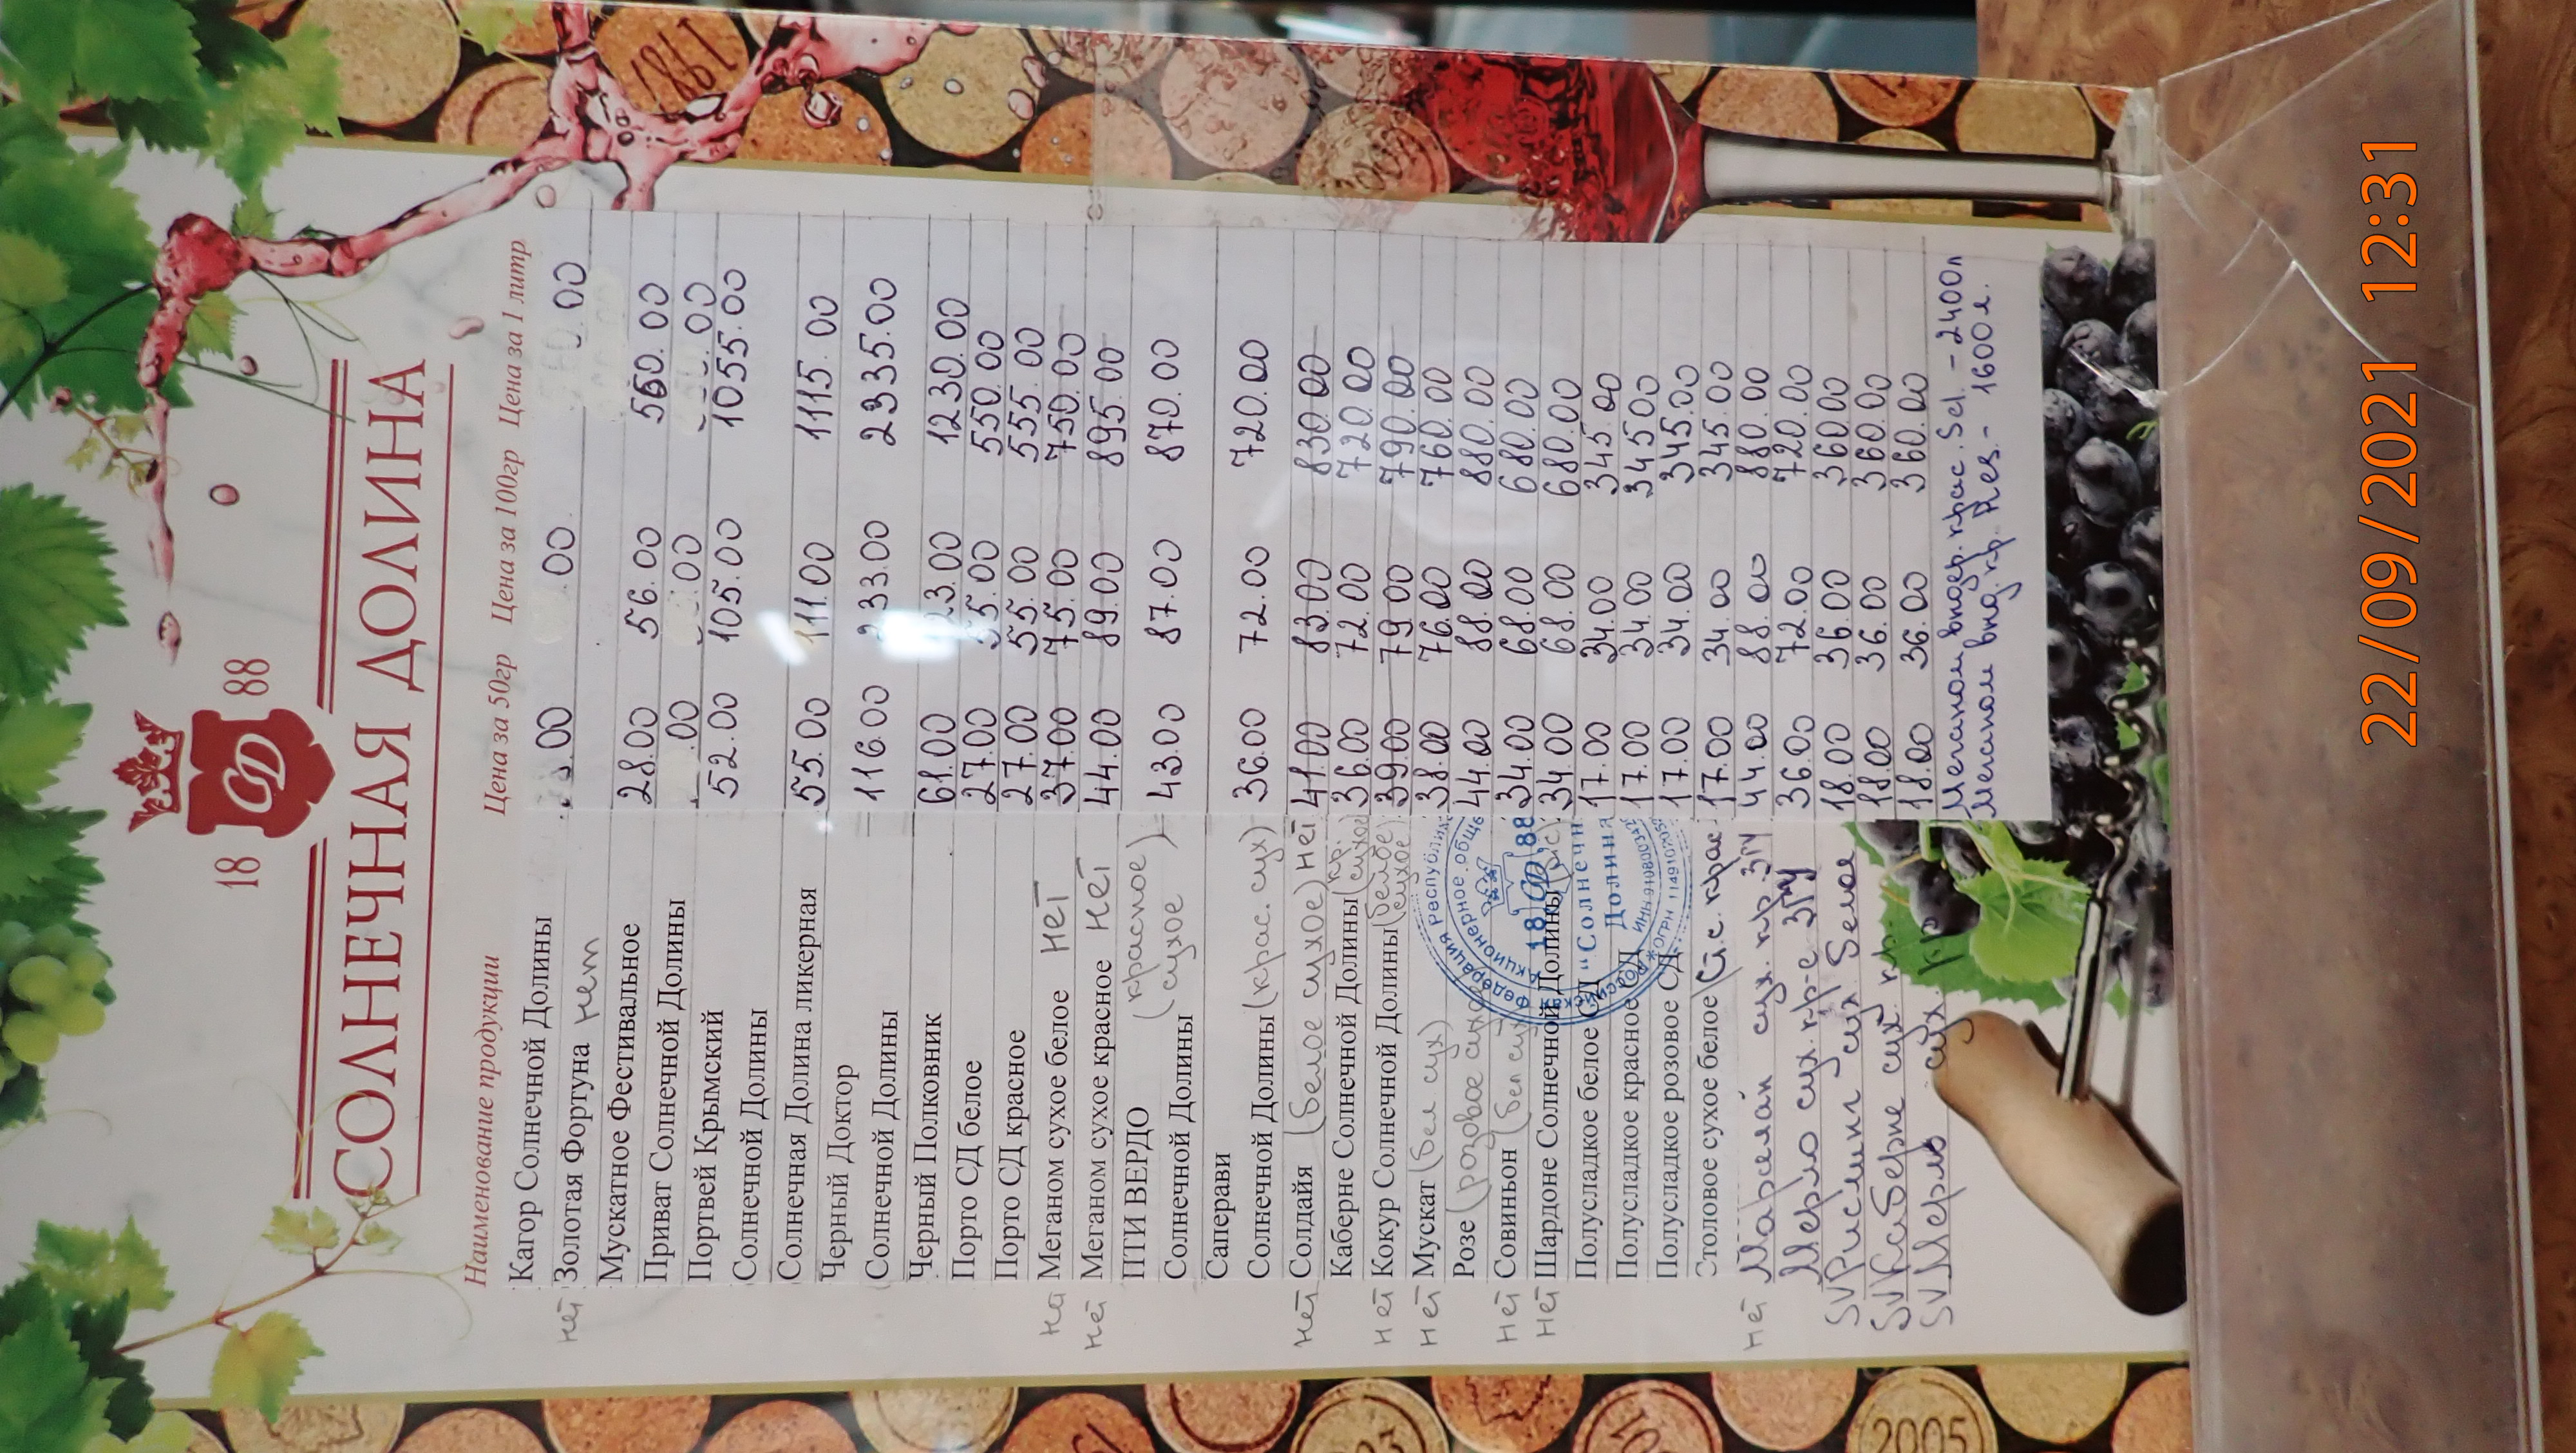 18 88
СОЛНЕЧНАЯ ДОЛИНА
Наименование продукции Цена за 50гр Цена за 100гр Цена за 1 литр
Кагор Солнечной Долины .00 .00 .00
нет Золотая Фортуна нет
Мускатное Фестивальное 28.00 56.00 560.00
Приват Солнечной Долины .00 .00 .00
Портвей Крымский 52.00 105.00 1055.00
Солнечной Долины
Солнечная Долина ликерная 55.00 111.00 1115.00
Черный Доктор
Солнечной Долины 116.00 233.00 2335.00
Черный Полковник 61.00 123.00 1230.00
Порто СД белое 27.00 55.00 550.00
Порто СД красное 27.00 55.00 555.00
Меганом сухое белое нет 37.00 75.00 750.00
нет Меганом сухое красное нет 44.00 89.00 895.00
ПТИ ВЕРДО (красное)
Солнечной Долины (сухое) 43.00 87.00 870.00
Саперави
Солнечной Долины (крас. сух) 36.00 72.00 720.00
нет Солдайя (белое сухое) нет 41.00 83.00 830.00
Каберне Солнечной Долины (кр. сухое) 36.00 72.00 720.00
нет Кокур Солнечной Долины (белое сухое) 39.00 79.00 790.00
нет Мускат (бел сух) 38.00 76.00 760.00
Розе (розовое сухое 44.00 88.00 880.00
нет Совиньон (бел сух 34.00 68.00 680.00
нет Шардоне Солнечной Долины 34.00 68.00 680.00
Полусладкое белое СД 17.00 34.00 345.00
Полусладкое красное СД 17.00 34.00 345.00
Полусладкое розовое СД 17.00 34.00 345.00
Столовое сухое белое 17.00 34.00 345.00
нет Марселан сух. кр. ЗГУ 44.00 88.00 880.00
Мерло сух. кр-е ЗГУ 36.00 72.00 720.00
SV Рислинг сух белое 18.00 36.00 360.00
SV Каберне сух. кр. 18.00 36.00 360.00
SV Мерло сух. кр 18.00 36.00 360.00
Меганом выдер. крас. Sel. - 2400л
Меганом выд. кр. Res. - 1600л.
Российская Федерация Республика
Акционерное общество
18 88
"Солнечная
Долина
1987
2005
22/09/2021 12:31